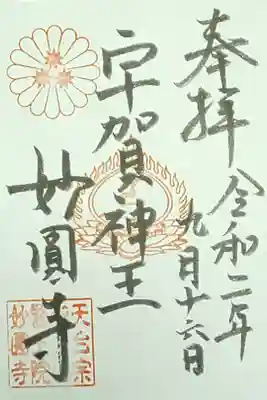 奉拝
令和二年
九月十六日
宇賀神王
妙圓寺
天台宗
妙圓寺